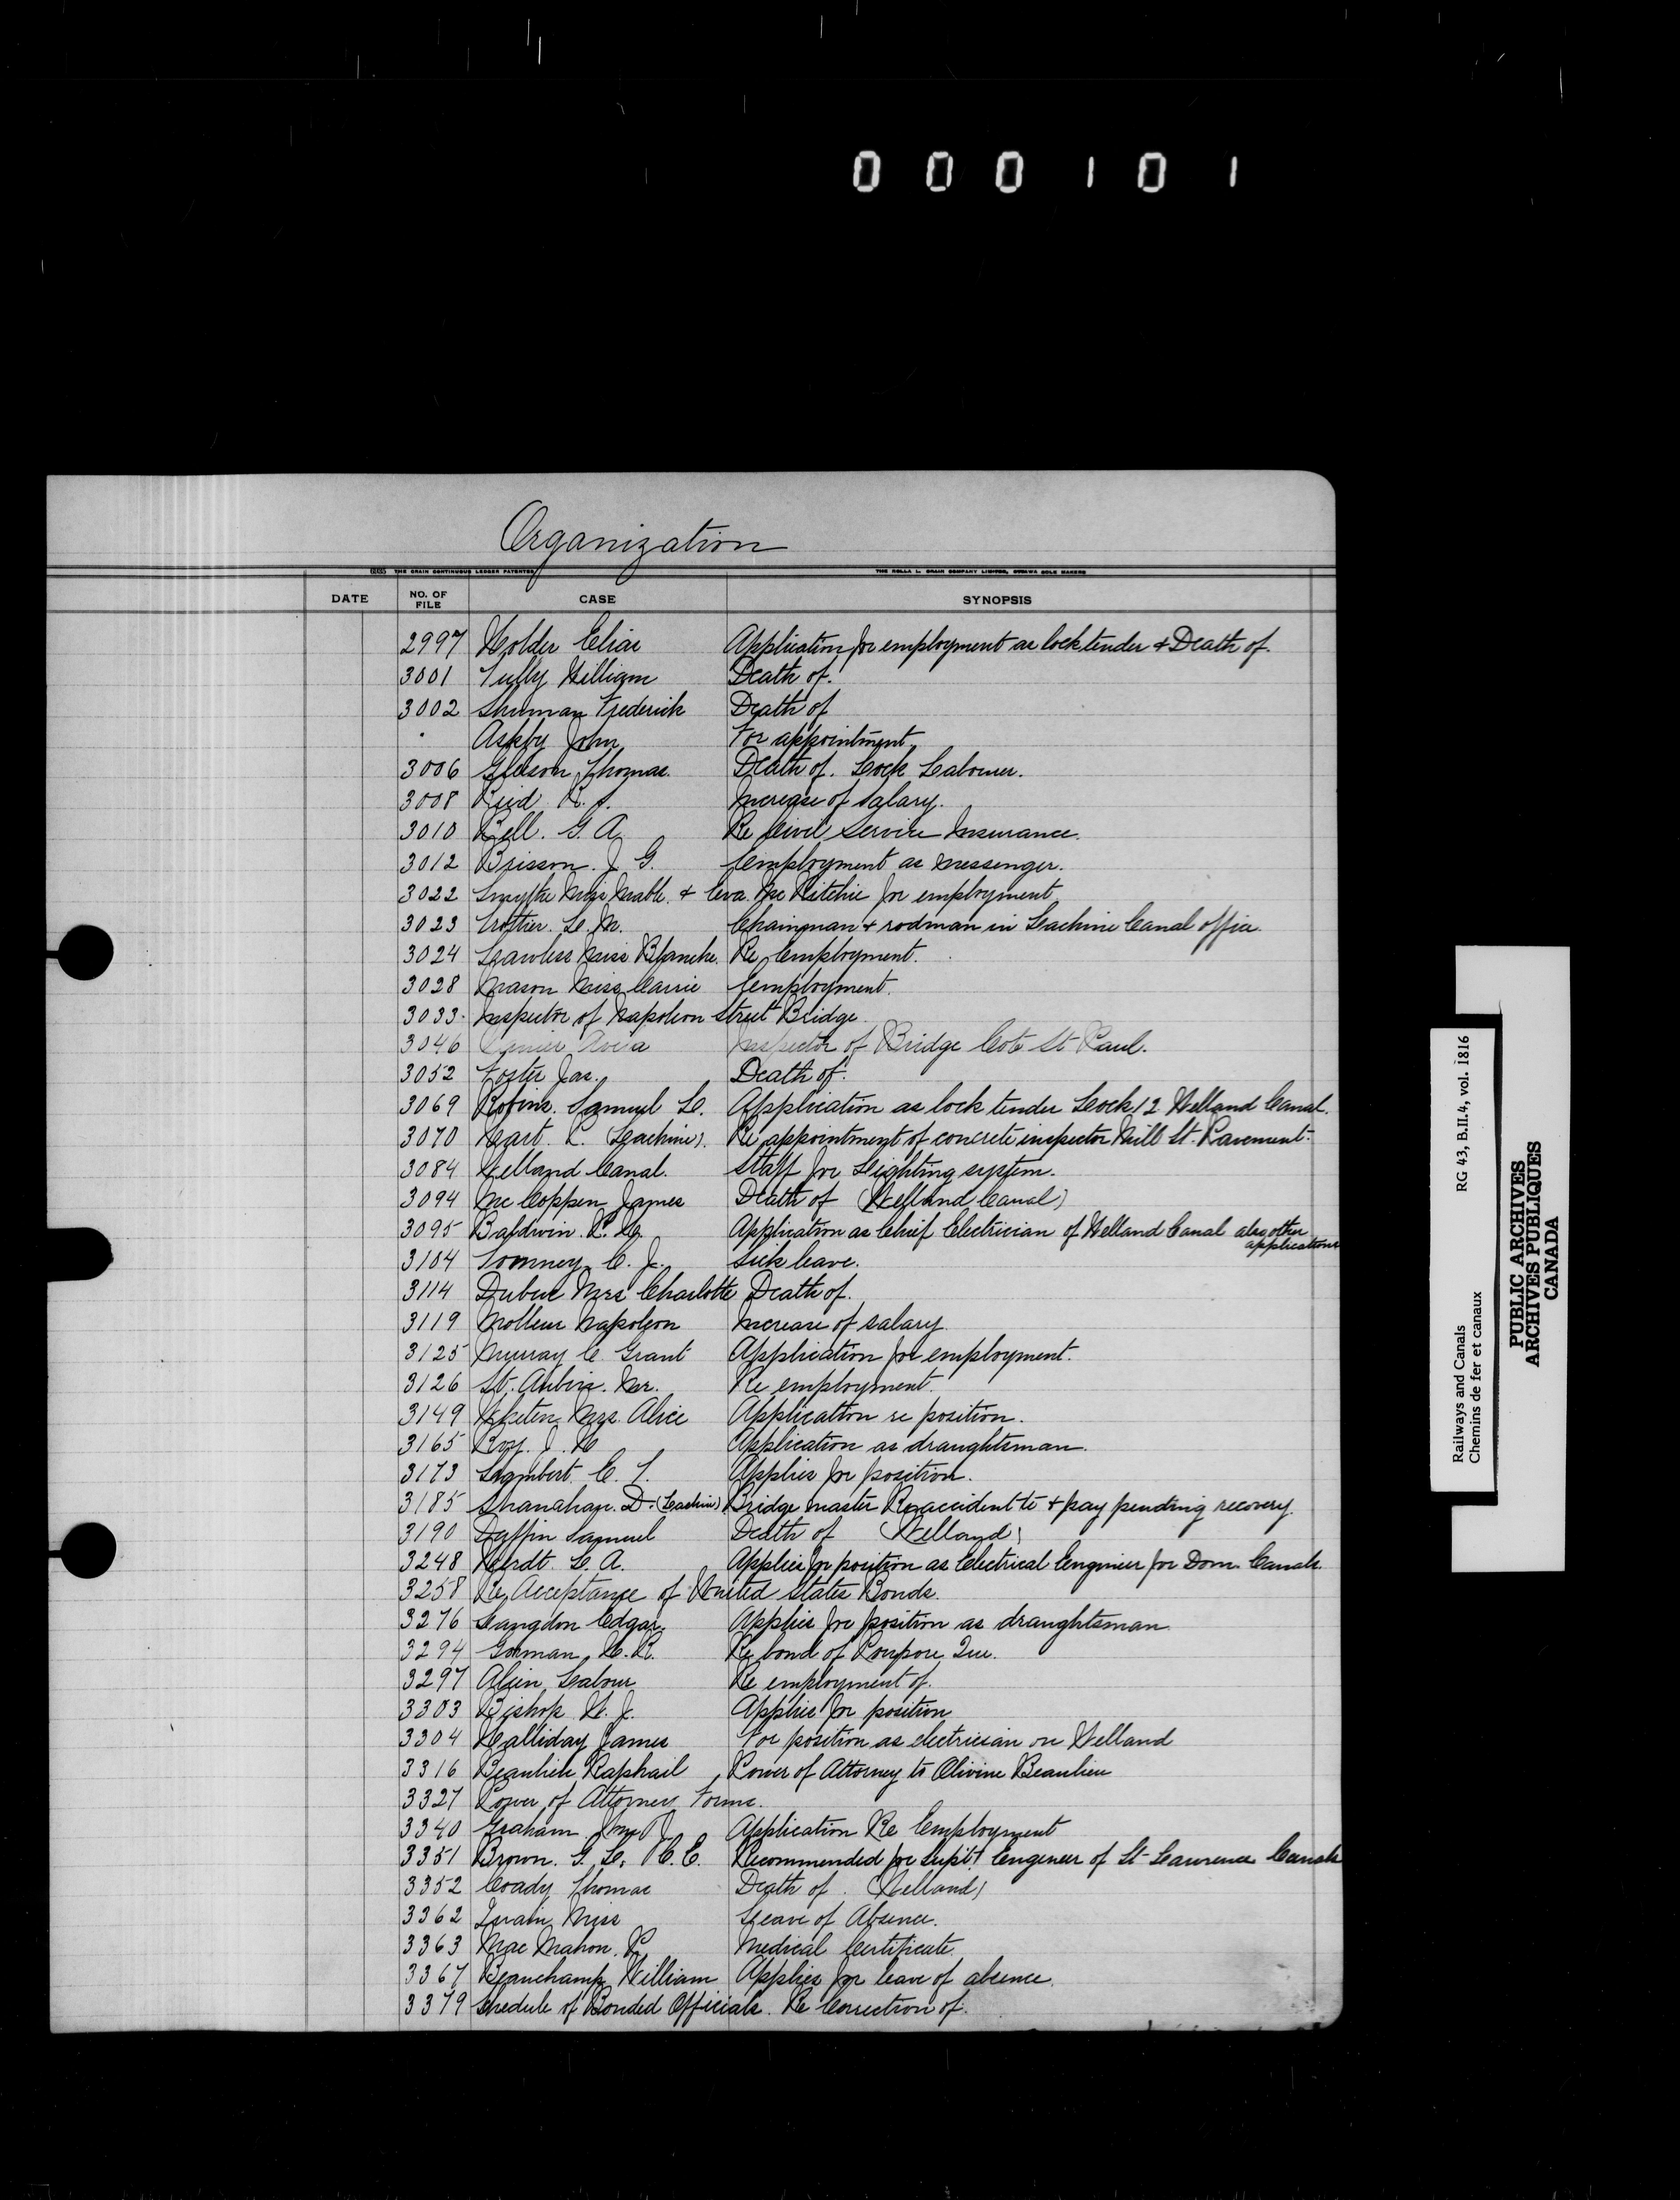 000101
Organization
THE CRAIN CONTINUOUS LEDGER PATENTED
THE ROLLA L. CRAIN COMPANY LIMITED, OTTAWA SOLE MAKERS
DATE NO. OF FILE CASE SYNOPSIS
2997 Holder Elias Application for employment as lock tender & Death of.
3001 Tully William Death of.
3002 Shuman Frederick Death of
Ashby John For appointment
3006 Gleeson Thomas. Death of. Lock Labourer.
3008 Reid R. S. Increase of Salary.
3010 Bell. G. A. Re Civil Service Insurance.
3012 Brisson. J. G. Employment as Messenger.
3022 Smythe Miss Mable & Eva Mc Ritchie for employment
3023 Trottier. L. M. Chainman & rodman in Lachine Canal office.
3024 Lawless Miss Blanche. Re employment.
3028 Mason Miss Carrie Employment.
3033. Inspector of Napoleon Street Bridge.
3046 Avila Inspector of Bridge Cote St Paul.
3052 Foster Jas. Death of.
3069 Robins. Samuel L. Application as lock tender Lock 12 Welland Canal.
3070 Hart. (Lachine). Re appointment of concrete inspector Mill St. Pavement.
3084 Welland Canal. Staff for Lighting system.
3094 Mc Coppen James Death of (Welland Canal)
3095 Baldwin. Application as Chief Electrician of Welland Canal also other applications
3104 Tomney. C. J. Sick leave.
3114 Dubuc Mrs Charlotte Death of.
3119 Molleur Napoleon Increase of salary
3125 Murray C Grant Application for employment.
3126 St. Aubin. Mr. Re employment.
3149 Mrs. Alice Application re position.
3165 Roy. J. H Application as draughtsman.
3173 Lambert. C. T. Applies for position.
3185 Shanahan. D. (Lachine) Bridge master Re accident to & pay pending recovery.
3190 Duffin Samuel Death of (Welland)
3248 Herdt. L. A. Applies for position as Electrical Engineer for Dom. Canals.
3258 Re Acceptance of United States Bonds.
3276 Langdon Edgar. Applies for position as draughtsman
3294 Gorman, Re bond of Poupore Que.
3297 Alien Labour Re employment of.
3303 Bishop W. J. Applies for position
3304 Halliday James For position as electrician on Welland
3316 Beaulieu Raphail Power of Attorney to Olivine Beaulieu
3327 Power of Attorney Forms.
3340 Graham Application Re Employment
3351 Brown. G. L. C.E. Recommended for Sup't Engineer of St Lawrence Canals
3352 Coady Thomas Death of. (Welland)
3362 Quain Miss Leave of Absence.
3363 Mac Mahon. Medical Certificate
3367 Beauchamp William Applies for leave of absence.
3379 Schedule of Bonded Officials. Re Correction of.
Railways and Canals RG 43, B.II.4, vol. 1816
Chemins de fer et canaux
PUBLIC ARCHIVES
ARCHIVES PUBLIQUES
CANADA